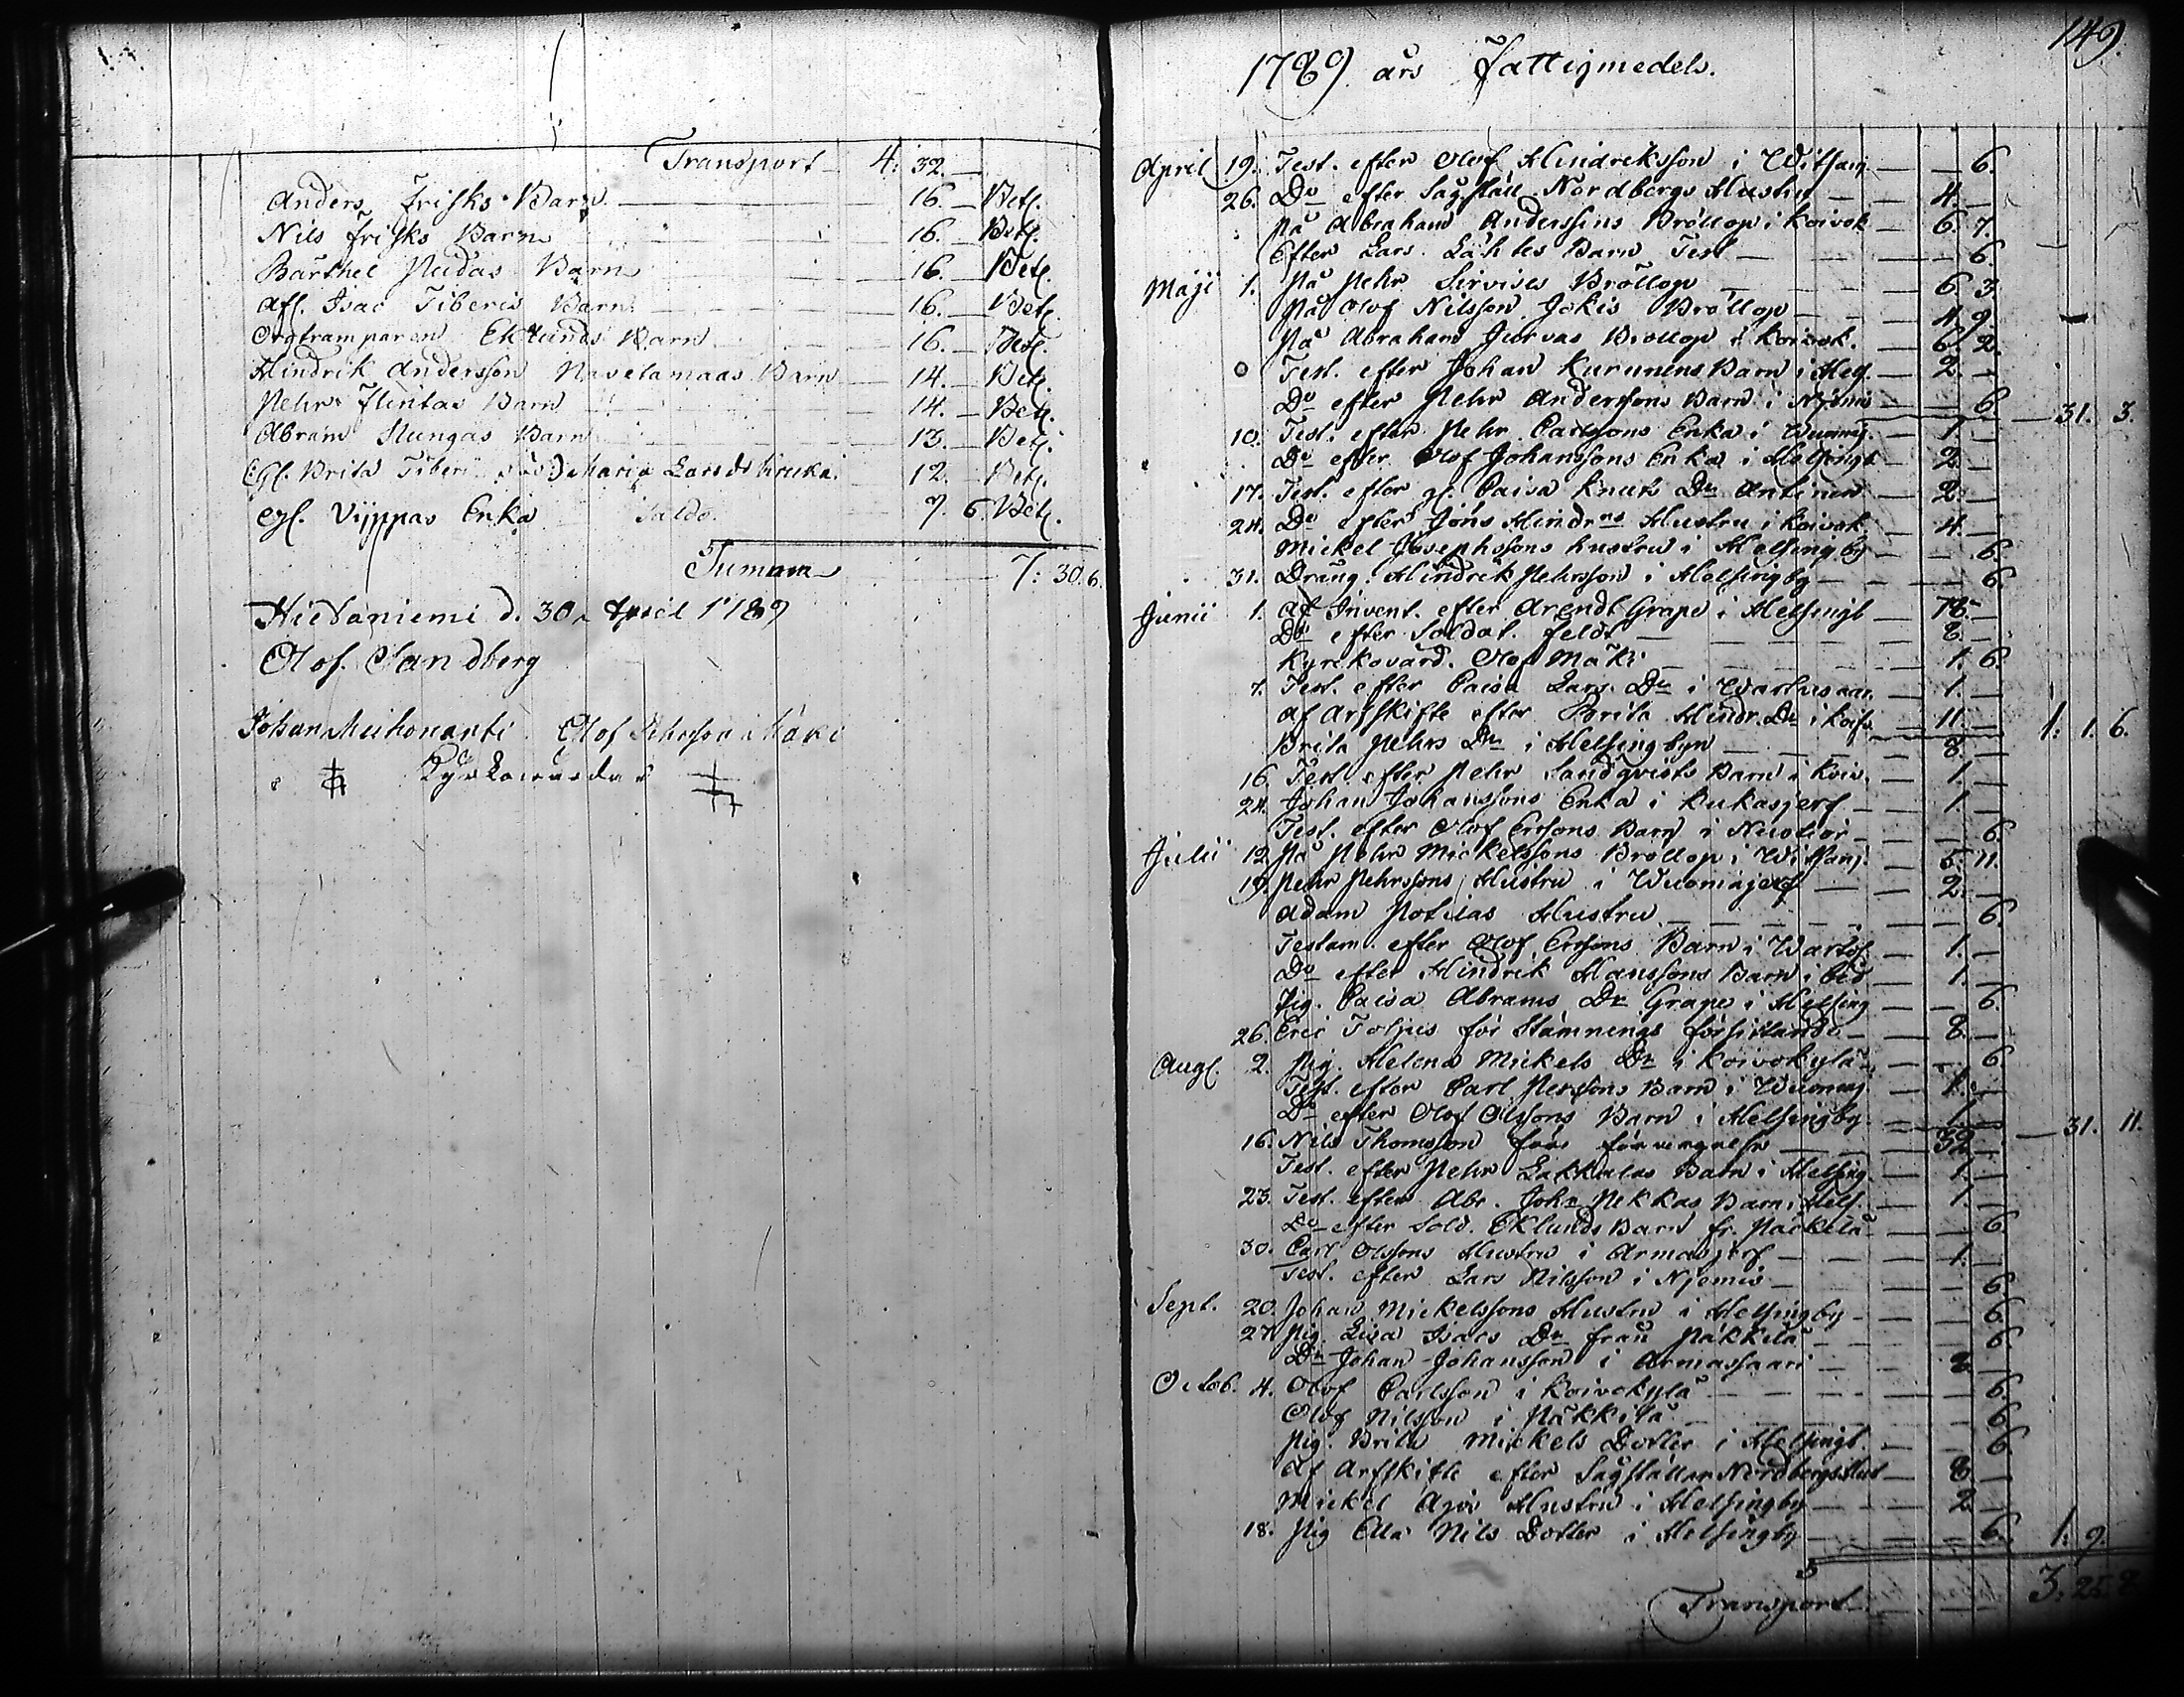 Transport 4: 32. —
Anders Frisks Barn 16. — Bet.
Nils Frisks Barn 16. — Bet.
Barthel Pudas Barn 16. — Bet.
Afl. Isac Tiberis Barn 16. — Bet.
Orgtramparen Eklunds Barn 16. — Bet.
Hindrik Andersson Navetamaas Barn 14. — Bet.
Pehr Flintas Barn 14. — Bet.
Abram Hungas Barn 13. — Bet.
Brita Tiberi Maria Lars dr Kruka 12. — Bet.
Enka Saldo. 7. 6. Bet.
Summa 7: 30. 6.
Hietaniemi d. 30 April 1789
Olof Sandberg
Johan Olof Pehrsson Mäki
Kyrkowärdar
149.
1789 års Fattigmedels.
April 19. Test. efter Olof Hindriksson i Witsanj — 6.
26. Do efter Sagställ. Nordbergs Hustru 4. —
På Abraham Anderssons Bröllop i Koivok 6. 7.
Efter Lars Lähtes Barn Test — 6.
Maji 1. På Pehr Sirvises Bröllop 6. 3
På Olof Nilsson Jokis Bröllop 4. 9.
På Abraham Juovas Bröllop i Koivok. 6. 2.
Test. efter Johan Kurunens Barn i Hels. 2. —
Do efter Pehr Anderssons Barn i Njemis — 6. — 31. 3.
10. Test. efter Pehr Carlssons Enka i Wuomaj. 1. —
Do efter Olof Johanssons Enka i Helsingb 2. —
17. Test. efter Caisa Knuts Dr Antinen 2. —
24. Do efter Jöns Hindrns Hustru i Koivok. 4. —
Mickel Josephssons hustru i Helsingby — 6.
31. Dräng. Hindrik Pehrsson i Helsingby — 6.
Junii 1. Af Invent. efter Arendt Grape i Helsingb 18. —
Do efter Soldat. Feldt 8. —
Kyrkovärd. Olof Mäki 1. 6.
7. Test. efter Caisa Lars Dr i 1. —
Af Arfskifte efter Brita Hindr. Dr i Koif. 11. — 1: 1. 6.
Brita Pehrs Dr i Helsingbyn 8. —
16. Test. efter Pehr Sandqvists Barn i Koiv. 1. —
24. Johan Johanssons Enka i Kukasjerf 1. —
Test. efter Olof Erssons Barn i — 6.
Julii 12. På Pehr Mickelssons Bröllop i Witsanj. 5. 11.
19. Pehr Pehrssons Hustru i Wuomajerf 2. —
Adam Potilas Hustru — 6.
Testam. efter Olof Erssons Barn i 1. —
Do efter Hindrik Hanssons Barn i 1. —
Pig. Caisa Abrams Dr Grape i Helsing — 6.
26. Eric Toljus för Stämnings försittande 8. —
Aug. 2. Pig. Helena Mickels Dr i Koivokylä — 6.
Test. efter Carl Perssons Barn i Wuomaj. 1. —
Do efter Olof Olssons Barn i Helsingby. 1. — — 31. 11.
16. Nils Thomsson 32. —
Test. efter Pehr Lakkalas Barn i Helsing. 1. —
23. Test. efter Abr. Johs Pekkas Barn i Hels. 1. —
Do efter Sold. Eklunds Barn fr. Päckelä — 6.
30. Carl Olssons Hustru i Armasjerf 1. —
Test. efter Lars Nilsson i Njemis — 6.
Sept. 20. Johan Mickelssons Hustru i Helsingby — 6.
27. Pig. Lisa Isacs Dr från Päkkilä — 6.
Dr Johan Johansson i Armassaari 2 —
Octob. 4. Olof Carlsson i Koivokylä — 6.
Olof Nilsson i Päkkilä — 6.
Pig. Brita Mickels Dotter i Helsingb. — 6.
Af Arfskifte efter Sagställar Nordbergs Hust 8. —
Mickel Ajos Hustru i Helsingby 2 —
18. Pig Ella Nils Dotter i Helsingby — 6. 1: 9.
Transport 3: 25. 8